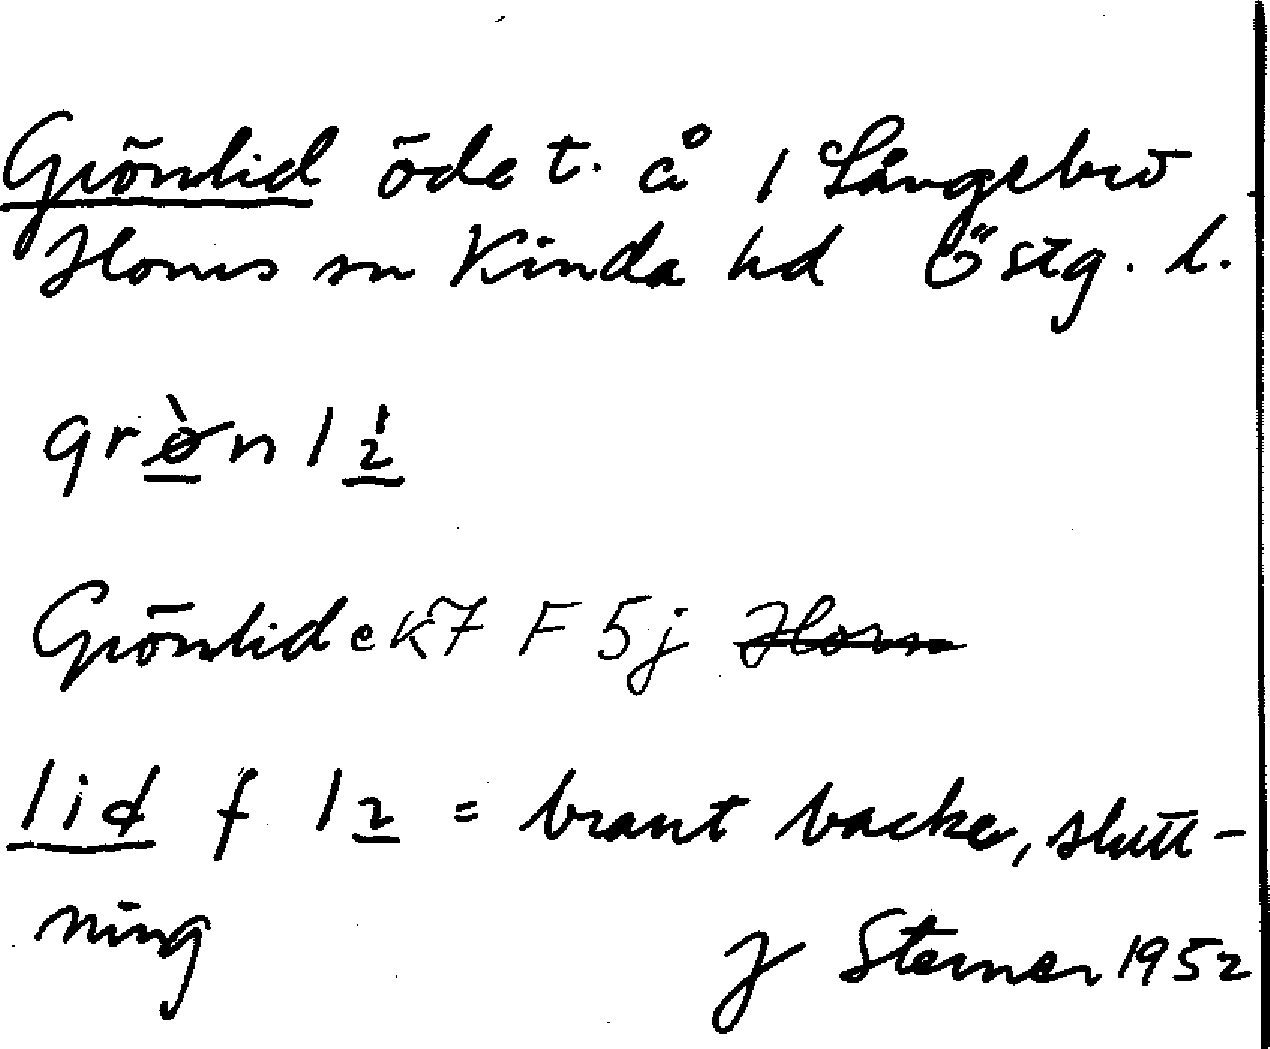 Grönlid öde t. å 1 Långebro
Horns sn Kinda hd Östg. l.
grø̀nlı
Grönlid ek7 F 5j Horn
lid f = brant backe, slutt-
ning
J Sterner 1952